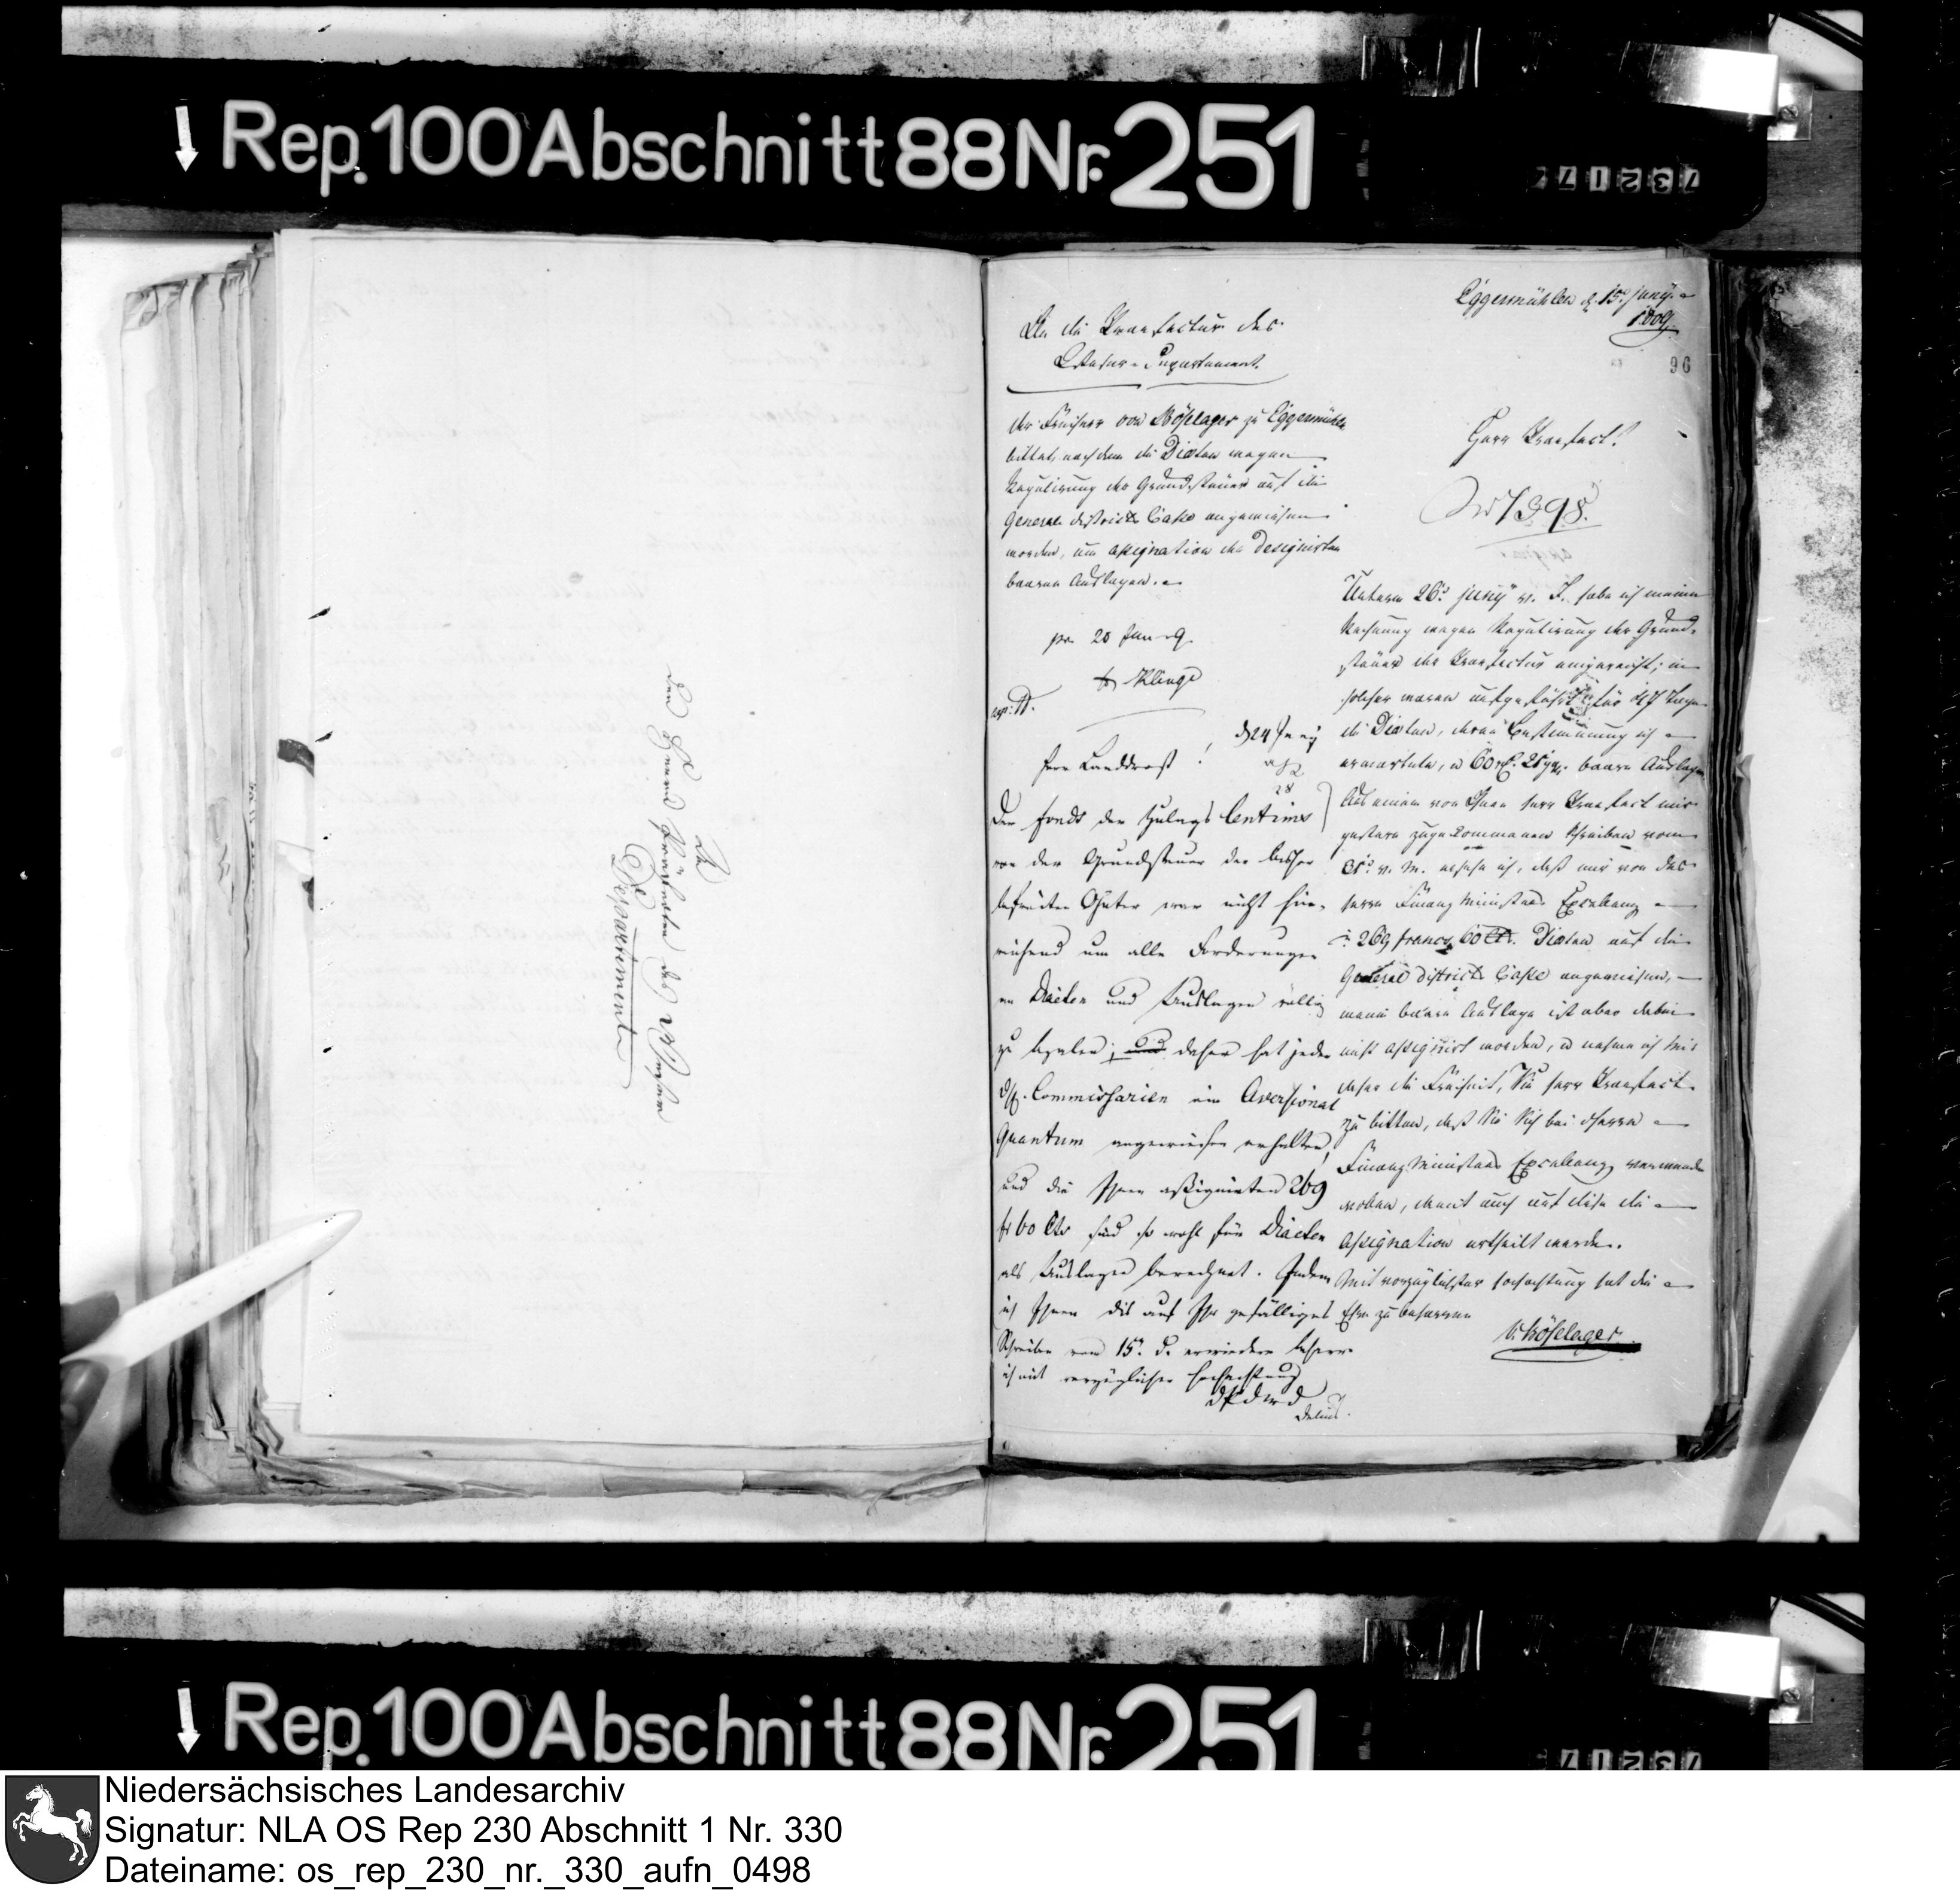 Rep. 100 Abschnitt 88 Nr. 251
73217
Eggermühlen d. 15t. Juny
1809.
96
An die Praefectur des
Weser-Departement.
Der Freiherr von Böselager zu Eggermühlen
bittet, nachdem die Diaeten wegen
Regulirung der Grundsteuer auf die
General districts Casse angewiesen
worden, um assignation der designirten
baaren Auslagen.
pr. 20 Jun 9.
Klinge
Herr Praefect!
No 1398.
Unterm 26t. Juny v. J. habe ich meine
Rechnung wegen Regulirung der Grund-
steuer der Praefectur eingereicht; in
solcher waren aufgeführt für Tage
die Diaeten, deren Bestimmung ich
erwartete, u 60 baare Auslagen
Aus einem von Ihnen Herr Praefect mir
gestern zugekommenen Schreiben vom
v. M. ersehe ich, daß mir von des
Herrn Finanz Ministers Excellenz
269 francs 60 Ct. Diaeten auf die
General districts Casse angewiesen,
meine baare Auslage ist aber dabei
nicht assignirt worden, u nehme ich mir
daher die Freiheit, Sie Herr Praefect
zu bitten, daß Sie Sich bei des Herrn
Finanz Ministers Excellenz verwenden
wollen, damit auch auf diese die
Assignation ertheilt werde.
Mit vorzüglichster Hochachtung hat die
Ehre zu beharren
v. Böselager
d 24 Juny
28
Herr Landdrost!
Der Fonds der Zulags Centimes
von der Grundsteuer der bisher
befreiten Güter war nicht hin-
reichend um alle Forderungen
an Diaeten und Auslagen völlig
zu bezalen; und daher hat jeder
d. H. Commissarien ein Aversional
Quantum angewiesen erhalten,
und die Ihnen assignirten 269
fr 60 Cts sind so wohl für Diaeten
als Auslagen berechnet. Indem
ich Ihnen dis auf Ihr gefälliges
Schreiben vom 15t. d. erwiedere beharre
ich mit vorzüglicher Hochachtung
Delius.
An
Departement
Rep. 100 Abschnitt 88 Nr. 251
73217
Niedersächsisches Landesarchiv
Signatur: NLA OS Rep 230 Abschnitt 1 Nr. 330
Dateiname: os_rep_230_nr._330_aufn_0498